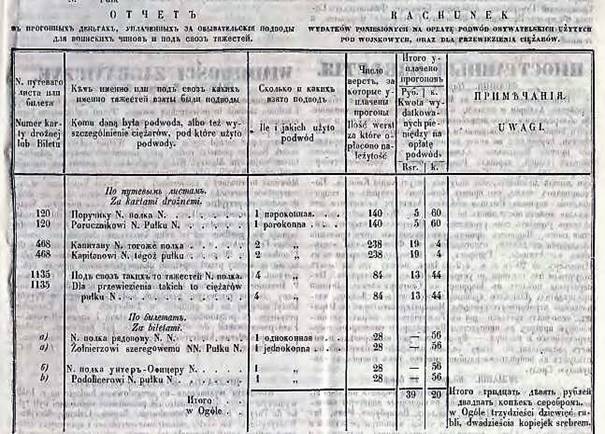 ОТЧЕТЪ
въ прогонныхъ деньгахъ, уплаченныхъ за обывательскія подводы
для воинскихъ чиновъ и подъ свозъ тяжестей.
RACHUNEK
WYDATKÓW PONIESIONYCH NA OPŁATĘ PODWÓD OBYWATELSKICH UŻYTYCH
POD WOJSKOWYCH, ORAZ DLA PRZEWIEZIENIA CIĘŻARÓW.
N. путеваго
листа или
билета
Numer kar-
ty drożnej
lub Biletu
Кѣмъ именно или подъ свозъ какихъ
именно тяжестей взяты были подводы
Komu daną była podwoda, albo też wy-
szczególnienie ciężarów, pod które użyto
podwody.
Сколько и какихъ
взято подводъ
Ile i jakich użyto
podwód
Число
верстъ, за
которые у-
плачены
прогоны
Ilość werst
za które o-
płacono na-
leżytość
Итого у-
плачено
прогоновъ
Руб. к.
Kwota wy-
datkowa-
nych pie-
niędzy na
opłatę
podwód.
Rsr. k.
ПРИМѢЧАНІЯ.
UWAGI.
По путевымъ листамъ.
Za kartami drożnemi.
120 Поручику N. полка N. 1 пароконная. 140 5 60
120 Porucznikowi N. Pułku N. 1 parokonna 140 5 60
468 Капитану N. тогоже полка 2 „ 238 19 4
468 Kapitanowi N. tegoż pułku 2 „ 238 19 4
1135 Подъ свозъ такихъ то тяжестей N. полка. 4 „ 84 13 44
1135 Dla przewiezienia takich to ciężarów
pułku N 4 „ 84 13 44
По билетамъ.
Za biletami.
а) N. полка рядовому N. N. 1 одноконная 28 — 56
a) Żołnierzowi szeregowemu NN. Pułku N. 1 jednokonna 28 — 56
б) N. полка унтеръ-Офицеру N. 1 „ 28 — 56
b) Podoficerowi N. pułku N 1 „ 28 — 56
Итого 39 20
w Ogóle
Итого тридцать девять рублей
двадцать копѣекъ серебромъ.
w Ogóle trzydzieści dziewięć ru-
bli, dwadzieścia kopiejek srebrem.